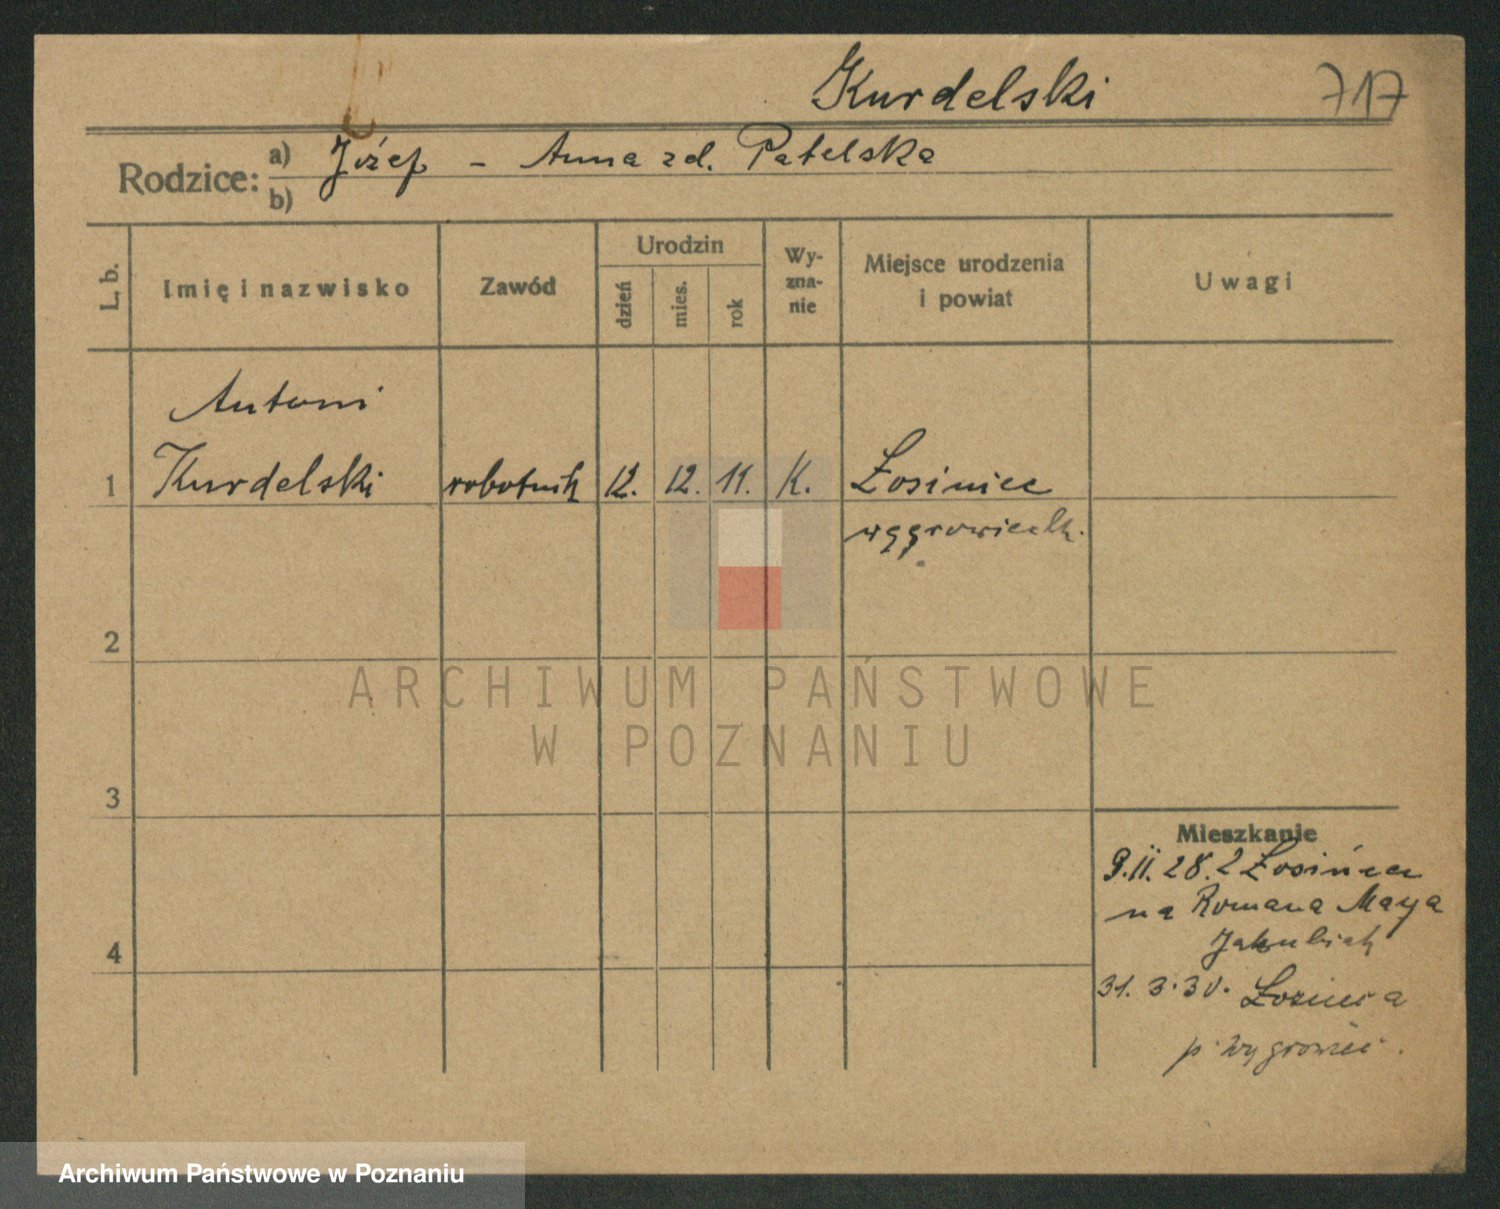 Kurdelski 717
Rodzice: a) Józef - Anna zd. Patelska
b)
L. b. Imię i nazwisko Zawód Urodzin dzień mies. rok Wy-zna-nie Miejsce urodzenia i powiat Uwagi
Antoni
1 Kurdelski robotnik 12. 12. 11. K. Łosiniec
wągrowieck.
2
ARCHIWUM PAŃSTWOWE
W POZNANIU
3
Mieszkanie
9.II.28. z Łosińca
na Romana Maya
4 Jakubiak
31. 3. 30. Łosińca
p. Wągrowiec.
Archiwum Państwowe w Poznaniu